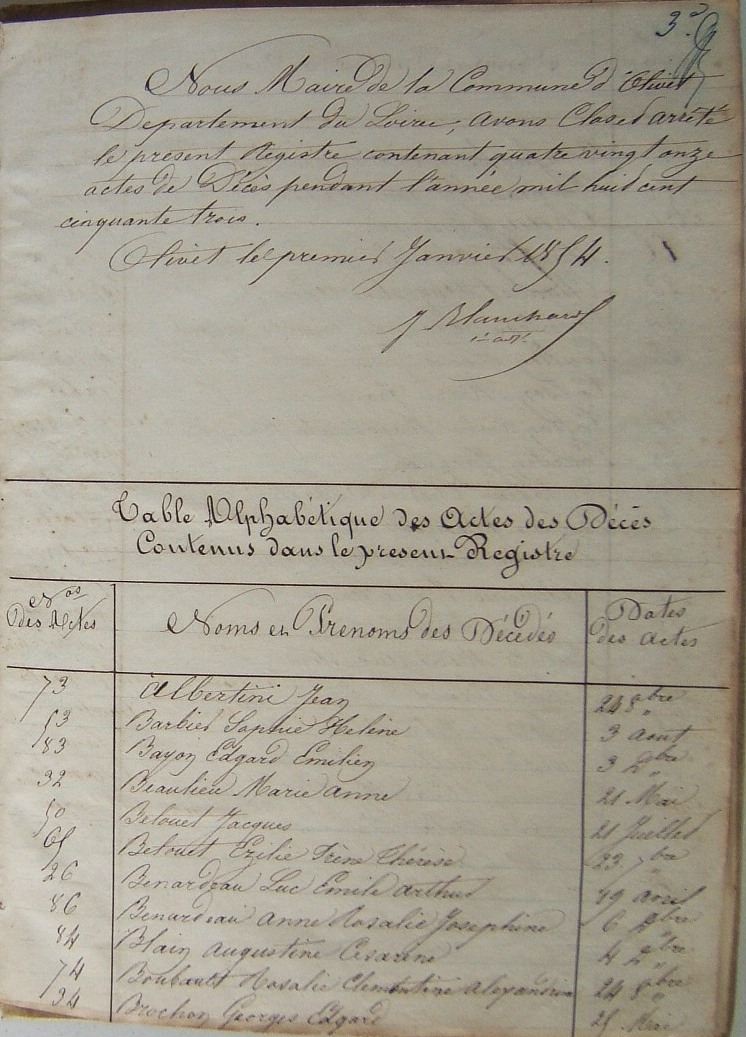 3e
Nous Maire de la Commune d'Olivet
Departement du Loiret, avons Clos et arrêté
le present Registre contenant quatre vingt onze
actes de Décès pendant l'année mil huit cent
cinquante trois.
Olivet le premier Janvier 1854.
J Blanchard
Table Alphabétique des Actes des Décès
Contenus dans le present Registre
Nos des Actes
Noms et Prenoms des Décédés
Dates des actes
73 Albertini Jean 24 8bre
53 Barbier Sophie Helene 3 aout
83 Bayon Edgard Emilien 3 Xbre
32 Beaulieu Marie anne 21 Mai
50 Belouet Jacques 21 Juillet
65 Belouet Ezilie Irène Thérèse 23 7bre
26 Benardeau Luc Emile arthur 19 avril
86 Benardeau anne Rosalie Josephine 6 Xbre
84 Blain augustine Cesarine 4 Xbre
74 Boubault Rosalie Clementine alexandrine 24 8bre
34 Brochon Georges Edgard 25 Mai